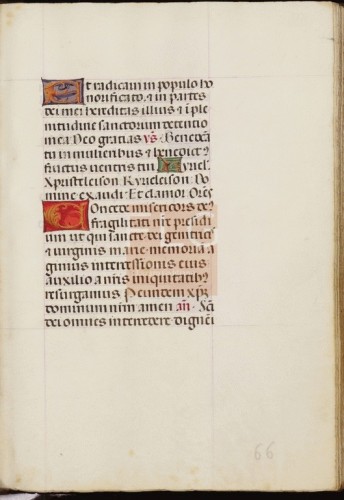 Et radicaui in populo ho
norificato. & in partes
dei mei hereditas illius & i ple
nitudine sanctorum detentio
mea. Deo gratias. vs. Benedic
ta tu in mulieribus & benedict9
fructus ventris tui. Kyriel.
Xpristeleison. Kyrieleison. Do
mine exaudi. Et clamor. Ores
Concede misericors de9
fragilitati nre presidi
um ut qui sancte dei genitricis
& uirginis marie memoria a
gimus intercessionis eius
auxilio a nris iniquitatib9
resurgamus. P eundem xpm
dominum nrm amen. an. Scti
dei omnes intercedere digneī
66